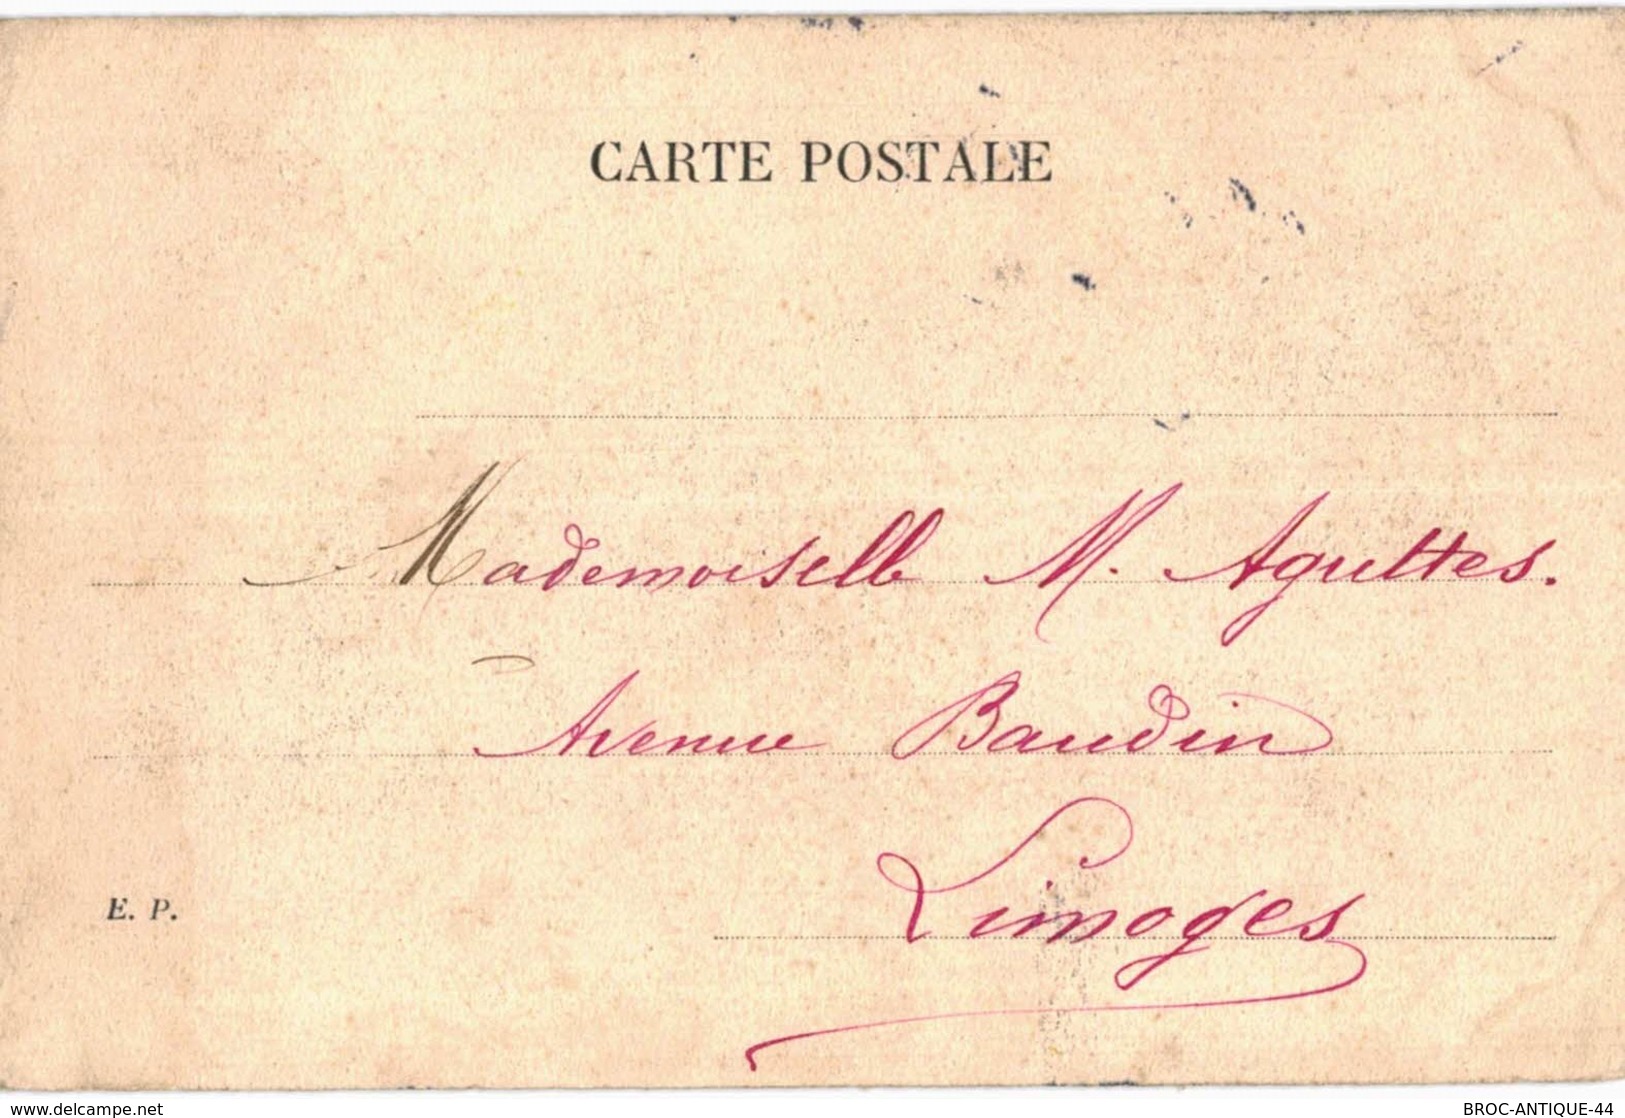 CARTE POSTALE
Mademoiselle M. Aguttes.
Avenue Baudin
Limoges
E. P.
www.delcampe.net
BROC-ANTIQUE-44